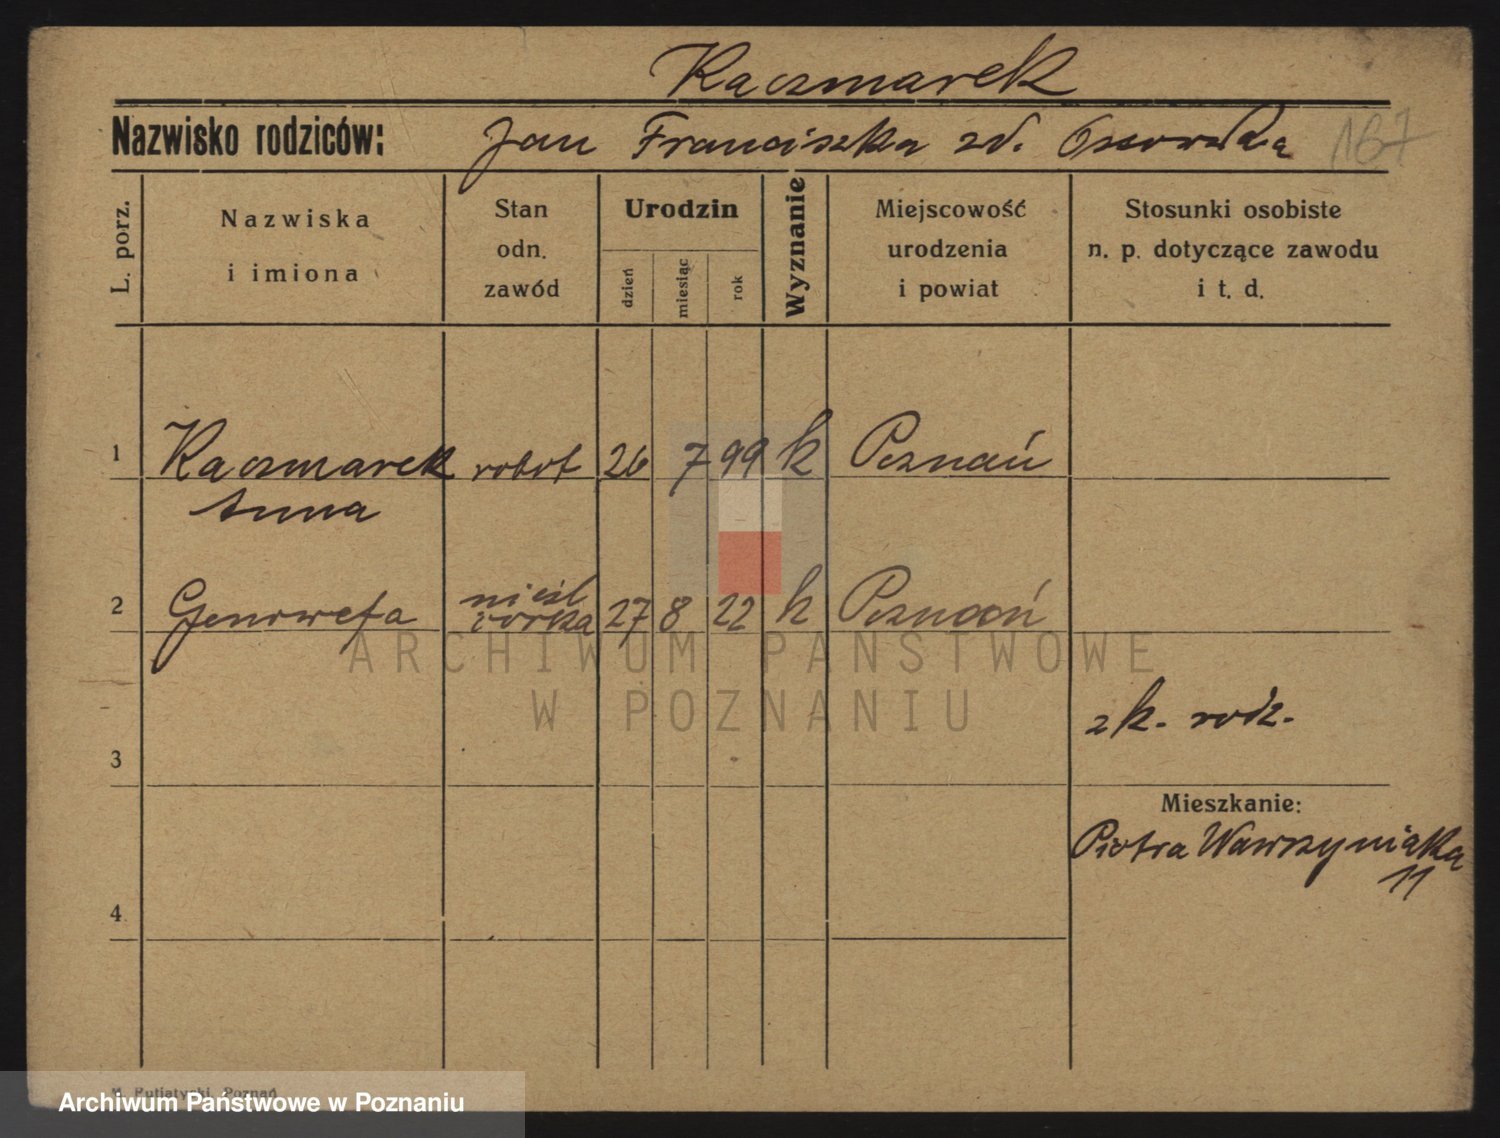 Kaczmarek
Nazwisko rodziców: Jan Franciszka zd. 167
L. porz. Nazwiska i imiona Stan odn. zawód Urodzin dzień miesiąc rok Wyznanie Miejscowość urodzenia i powiat Stosunki osobiste n. p. dotyczące zawodu i t. d.
1 Kaczmarek robot 26 7 99 k Poznań
Anna
2 Genowefa nieśl córka 27 8 22 k Poznań
ARCHIWUM PAŃSTWOWE
W POZNANIU
zk. rodz.
3
Mieszkanie:
Piotra Wawrzyniaka
11
4
M. Putiatycki, Poznań
Archiwum Państwowe w Poznaniu